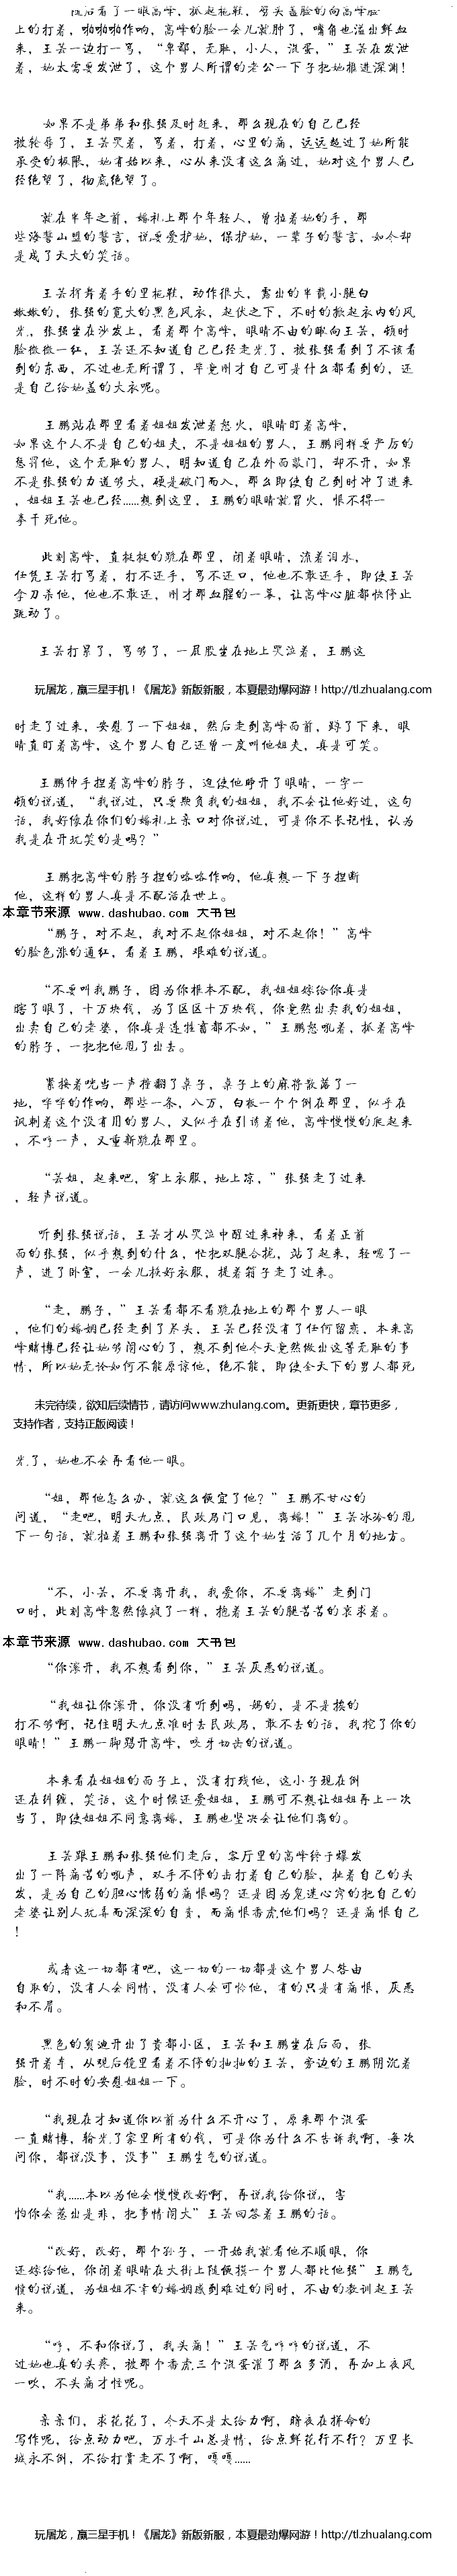 后看了一眼高峰，抓起拖鞋，劈头盖脸的向高峰脸
上的打着，啪啪啪作响，高峰的脸一会儿就肿了，嘴角也溢出鲜血
来，王芸一边打一骂，“卑鄙，无耻，小人，混蛋，”王芸在发泄
着，她太需要发泄了，这个男人所谓的老公一下子把她推进深渊！
如果不是弟弟和张强及时赶来，那么现在的自己已经
被轮辱了，王芸哭着，骂着，打着，心里的痛，远远超过了她所能
承受的极限，她有始以来，心从来没有这么痛过，她对这个男人已
经绝望了，彻底绝望了。
就在半年之前，婚礼上那个年轻人，曾拉着她的手，那
些海誓山盟的誓言，说要爱护她，保护她，一辈子的誓言，如今却
是成了天大的笑话。
王芸挥舞着手的里拖鞋，动作很大，露出的半截小腿白
嫩嫩的，张强的宽大的黑色风衣，起伏之下，不时的掀起衣内的风
光，张强坐在沙发上，看着那个高峰，眼睛不由的瞅向王芸，顿时
脸微微一红，王芸还不知道自己已经走光了，被张强看到了不该看
到的东西，不过也无所谓了，毕竟刚才自己可是什么都看到的，还
是自己给她盖的大衣呢。
王鹏站在那里看着姐姐发泄着怒火，眼睛盯着高峰，
如果这个人不是自己的姐夫，不是姐姐的男人，王鹏同样要严厉的
惩罚他，这个无耻的男人，明知道自己在外面敲门，却不开，如果
不是张强的力道够大，硬是破门而入，那么即使自己到时冲了进来
，姐姐王芸也已经......想到这里，王鹏的眼睛就冒火，恨不得一
拳干死他。
此刻高峰，直挺挺的跪在那里，闭着眼睛，流着泪水，
任凭王芸打骂着，打不还手，骂不还口，他也不敢还手，即使王芸
拿刀杀他，他也不敢还，刚才那血腥的一幕，让高峰心脏都快停止
跳动了。
王芸打累了，骂够了，一屁股坐在地上哭泣着，王鹏这
玩屠龙，赢三星手机！《屠龙》新版新服，本夏最劲爆网游！http://tl.zhualang.com
时走了过来，安慰了一下姐姐，然后走到高峰面前，蹲了下来，眼
睛直盯着高峰，这个男人自己还曾一度叫他姐夫，真是可笑。
王鹏伸手捏着高峰的脖子，迫使他睁开了眼睛，一字一
顿的说道，“我说过，只要欺负我的姐姐，我不会让他好过，这句
话，我好像在你们的婚礼上亲口对你说过，可是你不长记性，认为
我是在开玩笑的是吗？”
王鹏把高峰的脖子捏的咯咯作响，他真想一下子捏断
他，这样的男人真是不配活在世上。
本章节来源 www.dashubao.com 大书包
“鹏子，对不起，我对不起你姐姐，对不起你！”高峰
的脸色涨的通红，看着王鹏，艰难的说道。
“不要叫我鹏子，因为你根本不配，我姐姐嫁给你真是
瞎了眼了，十万块钱，为了区区十万块钱，你竟然出卖我的姐姐，
出卖自己的老婆，你真是连牲畜都不如，”王鹏怒吼着，抓着高峰
的脖子，一把把他甩了出去。
紧接着咣当一声撞翻了桌子，桌子上的麻将散落了一
地，哗哗的作响，那些一条，八万，白板一个个倒在那里，似乎在
讽刺着这个没有用的男人，又似乎在引诱着他，高峰慢慢的爬起来
，不哼一声，又重新跪在那里。
“芸姐，起来吧，穿上衣服，地上凉，”张强走了过来
，轻声说道。
听到张强说话，王芸才从哭泣中醒过来神来，看着正前
面的张强，似乎想到的什么，忙把双腿合拢，站了起来，轻嗯了一
声，进了卧室，一会儿换好衣服，提着箱子走了过来。
“走，鹏子，”王芸看都不看跪在地上的那个男人一眼
，他们的婚姻已经走到了尽头，王芸已经没有了任何留恋，本来高
峰赌博已经让她够闹心的了，想不到他今天竟然做出这等无耻的事
情，所以她无论如何不能原谅他，绝不能，即使全天下的男人都死
未完待续，欲知后续情节，请访问www.zhulang.com。更新更快，章节更多，
支持作者，支持正版阅读！
光了，她也不会再看他一眼。
“姐，那他怎么办，就这么便宜了他？”王鹏不甘心的
问道，“走吧，明天九点，民政局门口见，离婚！”王芸冰冷的甩
下一句话，就拉着王鹏和张强离开了这个她生活了几个月的地方。
“不，小芸，不要离开我，我爱你，不要离婚”走到门
口时，此刻高峰忽然像疯了一样，抱着王芸的腿苦苦的哀求着。
本章节来源 www.dashubao.com 大书包
“你滚开，我不想看到你，”王芸厌恶的说道。
“我姐让你滚开，你没有听到吗，妈的，是不是挨的
打不够啊，记住明天九点准时去民政局，敢不去的话，我挖了你的
眼睛！”王鹏一脚踢开高峰，咬牙切齿的说道。
本来看在姐姐的面子上，没有打残他，这小子现在倒
还在纠缠，笑话，这个时候还爱姐姐，王鹏可不想让姐姐再上一次
当了，即使姐姐不同意离婚，王鹏也坚决会让他们离的。
王芸跟王鹏和张强他们走后，客厅里的高峰终于爆发
出了一阵痛苦的吼声，双手不停的击打着自己的脸，扯着自己的头
发，是为自己的胆心懦弱的痛恨吗？还是因为鬼迷心窍的把自己的
老婆让别人玩弄而深深的自责，而痛恨秃虎他们吗？还是痛恨自己
！
或者这一切都有吧，这一切的一切都是这个男人咎由
自取的，没有人会同情，没有人会可怜他，有的只是有痛恨，厌恶
和不屑。
黑色的奥迪开出了贵都小区，王芸和王鹏坐在后面，张
强开着车，从观后镜里看着不停的抽抽的王芸，旁边的王鹏阴沉着
脸，时不时的安慰姐姐一下。
“我现在才知道你以前为什么不开心了，原来那个混蛋
一直赌博，输光了家里所有的钱，可是你为什么不告诉我啊，每次
问你，都说没事，没事”王鹏生气的说道。
“我......本以为他会慢慢改好啊，再说我给你说，害
怕你会惹出是非，把事情闹大”王芸回答着王鹏的话。
“改好，改好，那个孙子，一开始我就看他不顺眼，你
还嫁给他，你闭着眼睛在大街上随便摸一个男人都比他强”王鹏气
愤的说道，为姐姐不幸的婚姻感到难过的同时，不由的教训起王芸
来。
“哼，不和你说了，我头痛！”王芸气咋咋的说道，不
过她也真的头疼，被那个秃虎三个混蛋灌了那么多酒，再加上夜风
一吹，不头痛才怪呢。
亲亲们，求花花了，今天不是太给力啊，暗夜在拼命的
写作呢，给点动力吧，万水千山总是情，给点鲜花行不行？万里长
城永不倒，不给打赏走不了啊，嘎嘎......
玩屠龙，赢三星手机！《屠龙》新版新服，本夏最劲爆网游！http://tl.zhualang.com